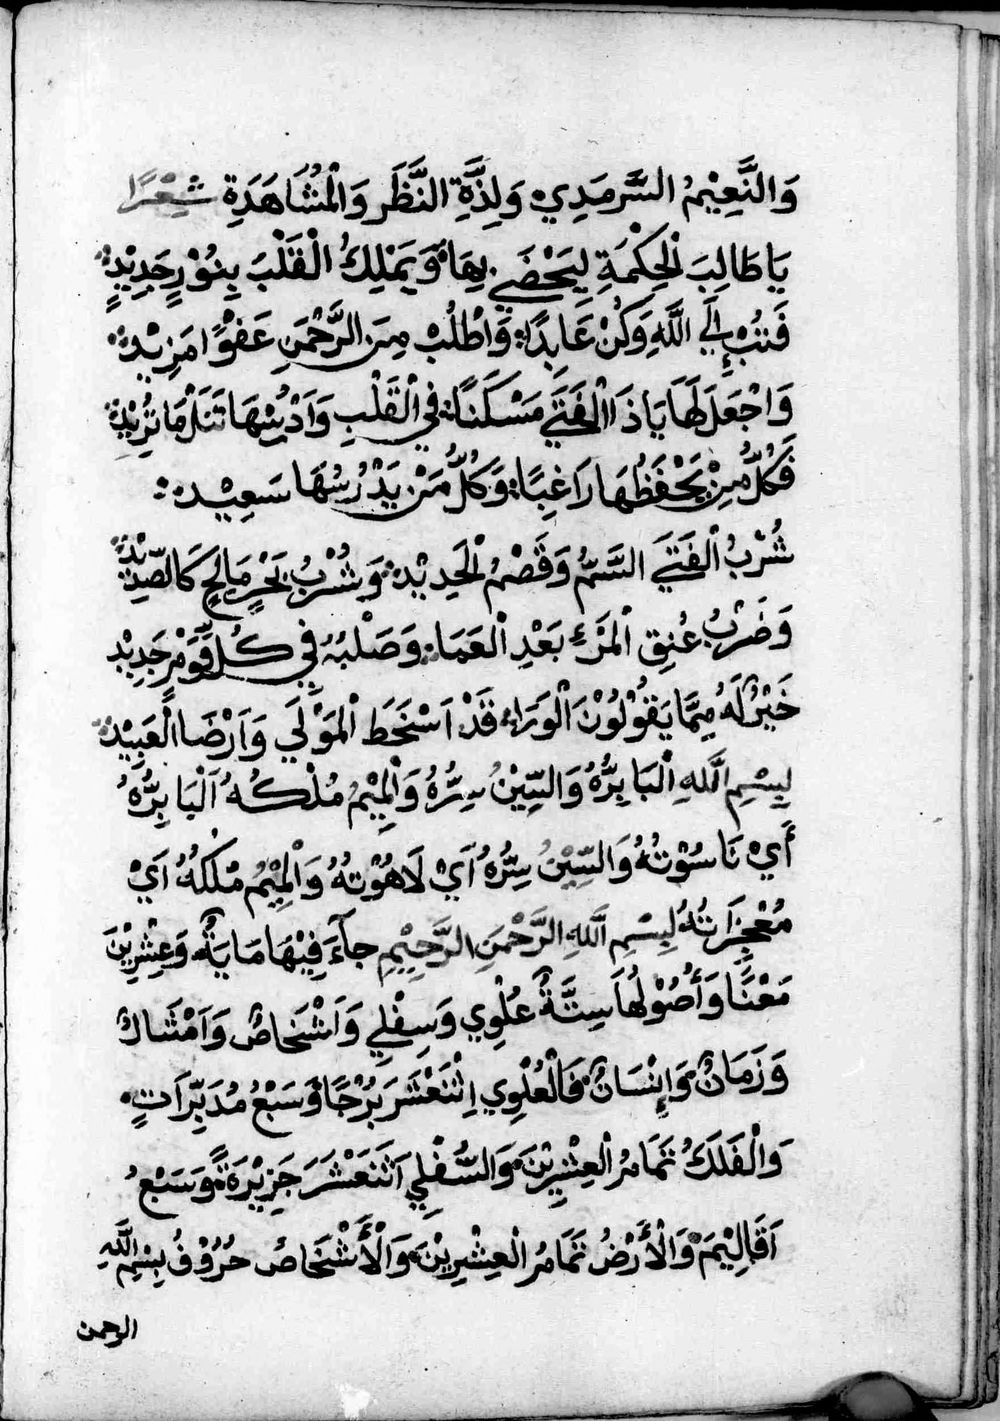 وَالنَّعِيْمُ السَّرمَدِيْ وَلِذَّةِ النَّظَرِ وَالْمُشَاهَدَةِ شِعْرًا
يَا طَالِبَ الْحِكْمَةِ لِيَحْضَي بِهَا وَيَمْلِكُ الْقَلْبَ بِنُوْرٍ جَدِيْدٍ
فَتُبْ إِلَي اللَّهِ وَكُنْ عَابِدًا وَاْطْلُبْ مِنَ الرَّحْمَنِ عَفْوًا مَزِيْدْ
وَاجْعَلَ لَهَا يَا ذَا الْفَتَي مَسْكَنًا فِي الْقَلْبِ وَادْرُسْهَا تَنَلْ مَا تُرِيْدْ
فَكُلُّ مِنْ يَحْفَظُهَا رَاغِبًا وَكُلُّ مَنْ يَدْرُسُهَا سَعِيْدْ
شُرْبُ الْفَتَي السَّمُّ وَقَضْمُ الْحَدِيْدْ وَشُرْبُ بَحْرٍ مَالِحٍ كَالصَّدِيْدْ
وَضَرْبُ عُنِقِ الْمَرْءِ بَعْدِ الْعَمَا وَصَلْبُهُ فِي كُلِّ قَوْمٍ جَدِيْدْ
خَيْرٌ لَهُ مِمَّا يَقُوْلُوْنَ الْوَرَا قَدْ اَسْخَطَ الْمَوْلَي وَاَرْضَا الْعَبِيْدْ
لِبِسْمِ اللَّهِ الْبَا بِرُّهُ وَالسِّيْنُ سِرُّهُ وَالْمِيْمُ مُلْكُهُ اَلْبَا بِرُّهُ
أَيْ نَاسُوْتُهُ وَالسِّيْنُ سِرُّهُ اَيْ لَاهُوْتُهُ وَالْمِيْمُ مُلْكُهُ اَيْ
مُعْجِزَاتُهُ لِبِسْمِ اللَّهِ الرَّحْمَنِ الرَّحِيْمِ جآءَ فِيْهَا مَايَةٌ وَعِشْرِيْنَ
مَعْنًا وَأُصُوْلُهَا سِتَّةٌ عُلْوِي وَسِفْلِي وَاَشْخَاصٌ وَاَمْثَالٌ
وَزَمَانٌ وَإِنْسَانٌ فَالْعُلْوِي اِثْنَعْشَرَ بُرْجًا وَسَبْعُ مُدَبِّرَاتٍ
وَالْفَلَكُ تَمَامُ الْعِشْرِيْنَ وَالسُّفْلِي اَثْنَعْشَرَ جَزِيْرَةً وَسَبْعُ
اَقَالِيْمَ وَالْأَرْضُ تَمَامُ الْعِشْرِيْنَ وَالْأَشْخَاصُ حُرُوْفُ بِسْمِ اللَّهِ
الرحمن